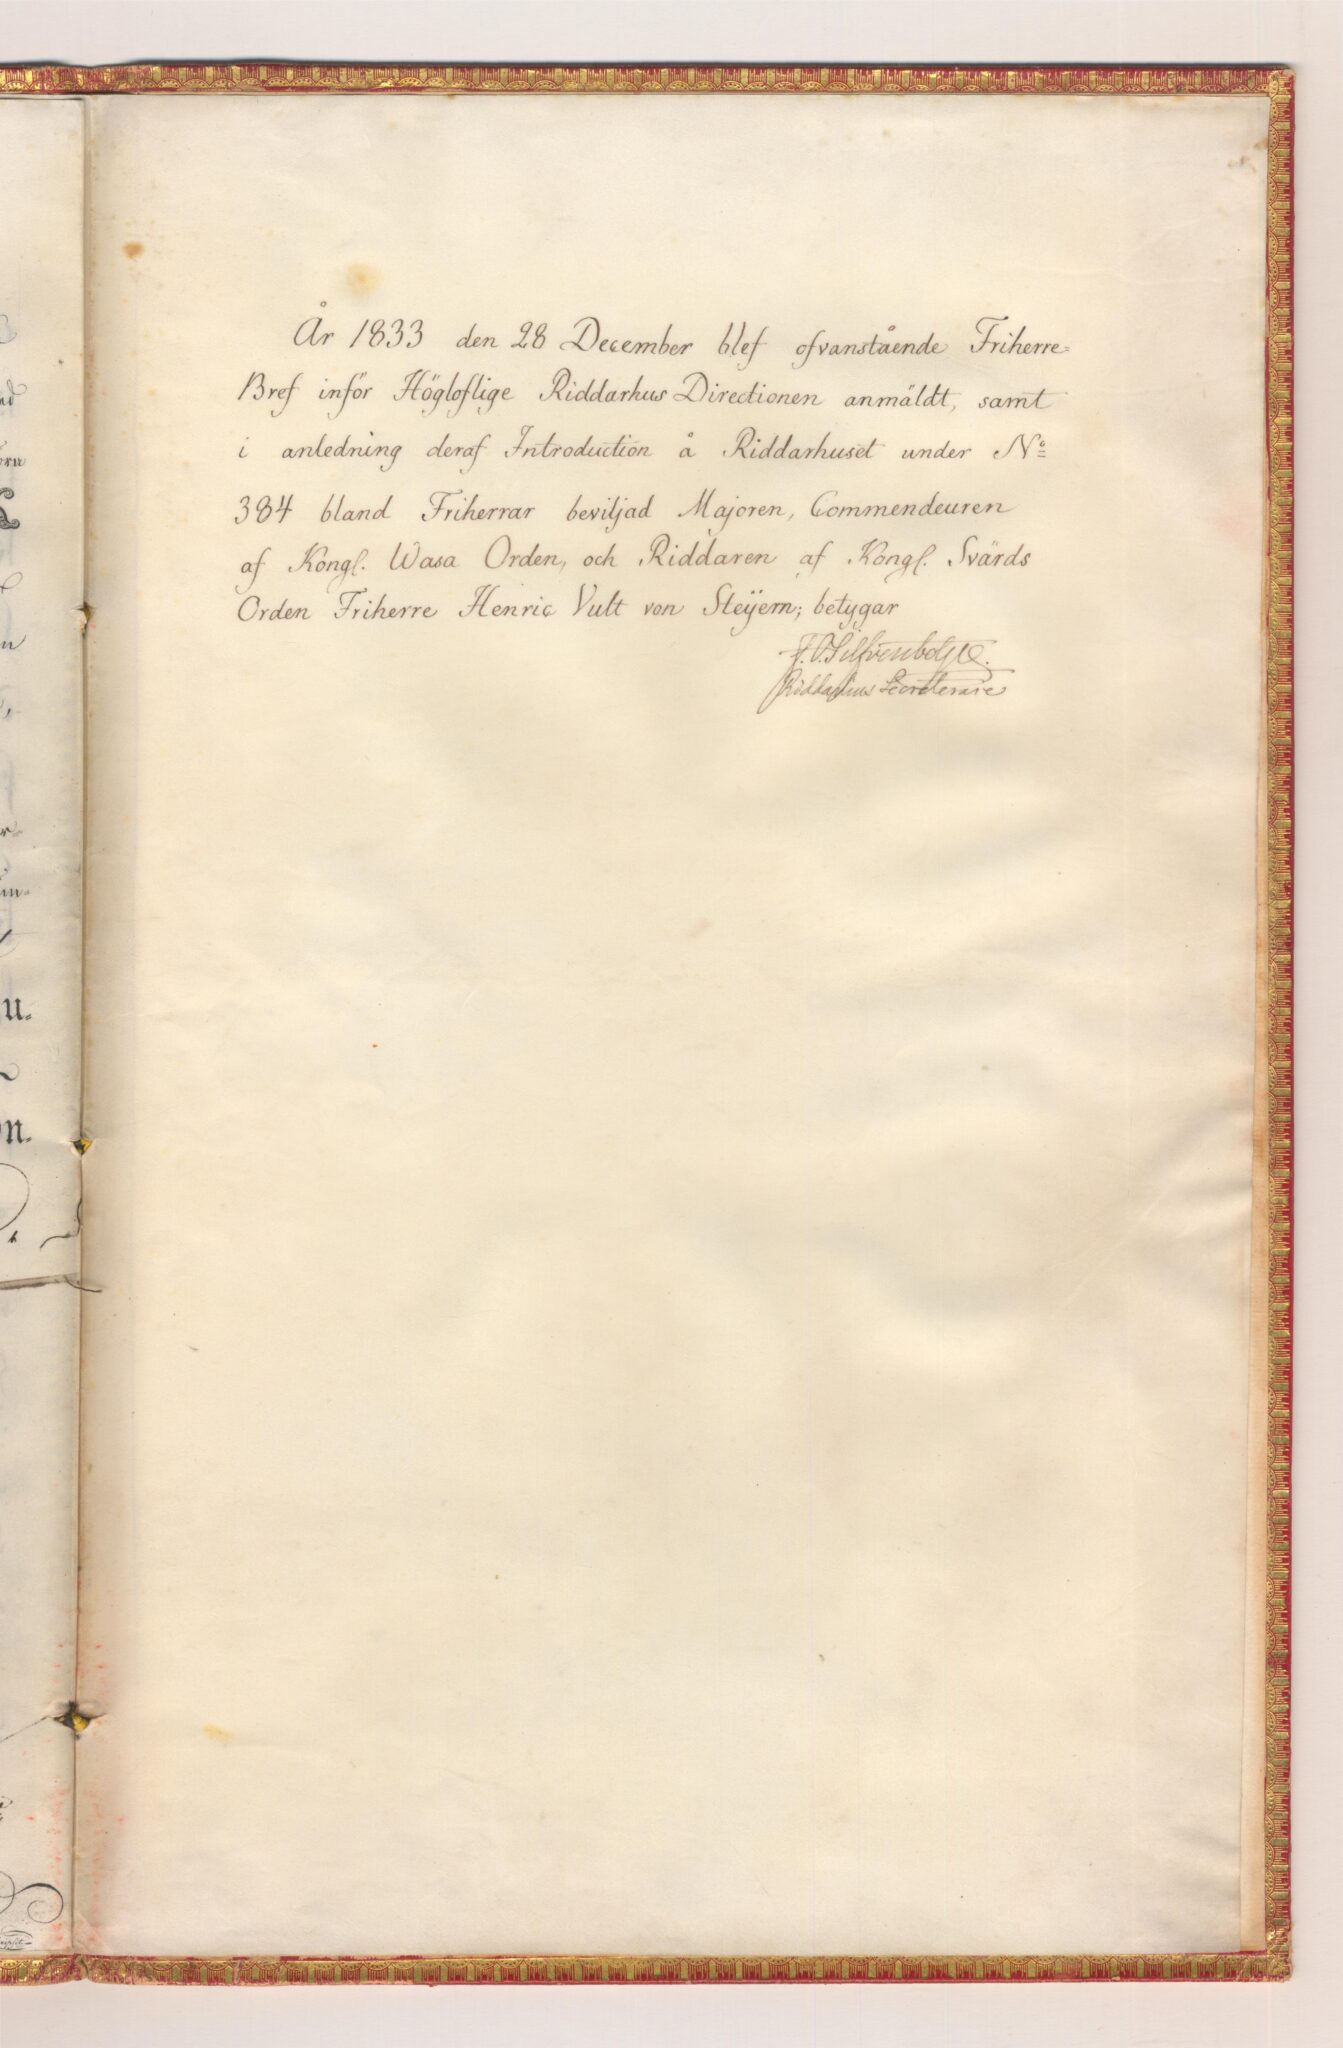 År 1833 den 28 December blef ofvanstående Friherre=
Bref inför Högloflige Riddarhus Directionen anmäldt, samt
i anledning deraf Introduction å Riddarhuset under No
384 bland Friherrar beviljad Majoren, Commendeuren
af Kongl. Wasa Orden, och Riddaren af Kongl. Svärds
Orden Friherre Henric Vult von Steÿern; betygar
Riddarhus Secreterare